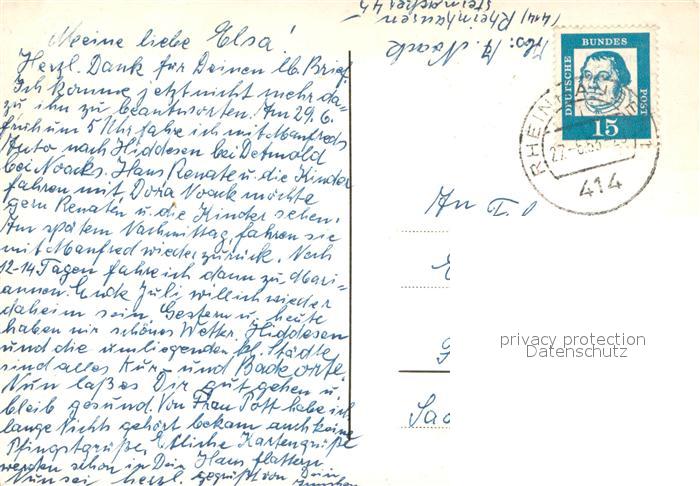 Meine liebe Elsa!
Herzl. Dank für Deinen lb. Brief.
Ich komme jetzt nicht mehr da-
zu ihn zu beantworten. Am 29.6.
früh um 5 Uhr fahre ich mit Manfreds
Auto nach Hiddesen bei Detmold
bei Noacks. Hans Renate u. die Kinder
fahren mit. Dora Noack möchte
gern Renate u. die Kinder sehen.
Am späten Nachmittag fahren sie
mit Manfred wieder zurück. Nach
12-14 Tagen fahre ich dann zu Mari-
annen. Ende Juli will ich wieder
daheim sein. Gestern u. heute
haben wir schönes Wetter. Hiddesen
und die umliegenden kl. Städte
sind alles Kur- und Badeorte.
Nun laß es Dir gut gehen u.
bleib gesund. Von Frau Pott habe ich
lange Nichts gehört bekam auch keine
Pfingstgrüße. Etliche Kartengrüße
werden schon in Dein Haus flattern.
Nun sei herzl. gegrüßt von Dein
Abs: H. Noack
414 Rheinhausen
DEUTSCHE BUNDES POST
15
RHEINHAUSEN
414
An
Sac
privacy protection
Datenschutz